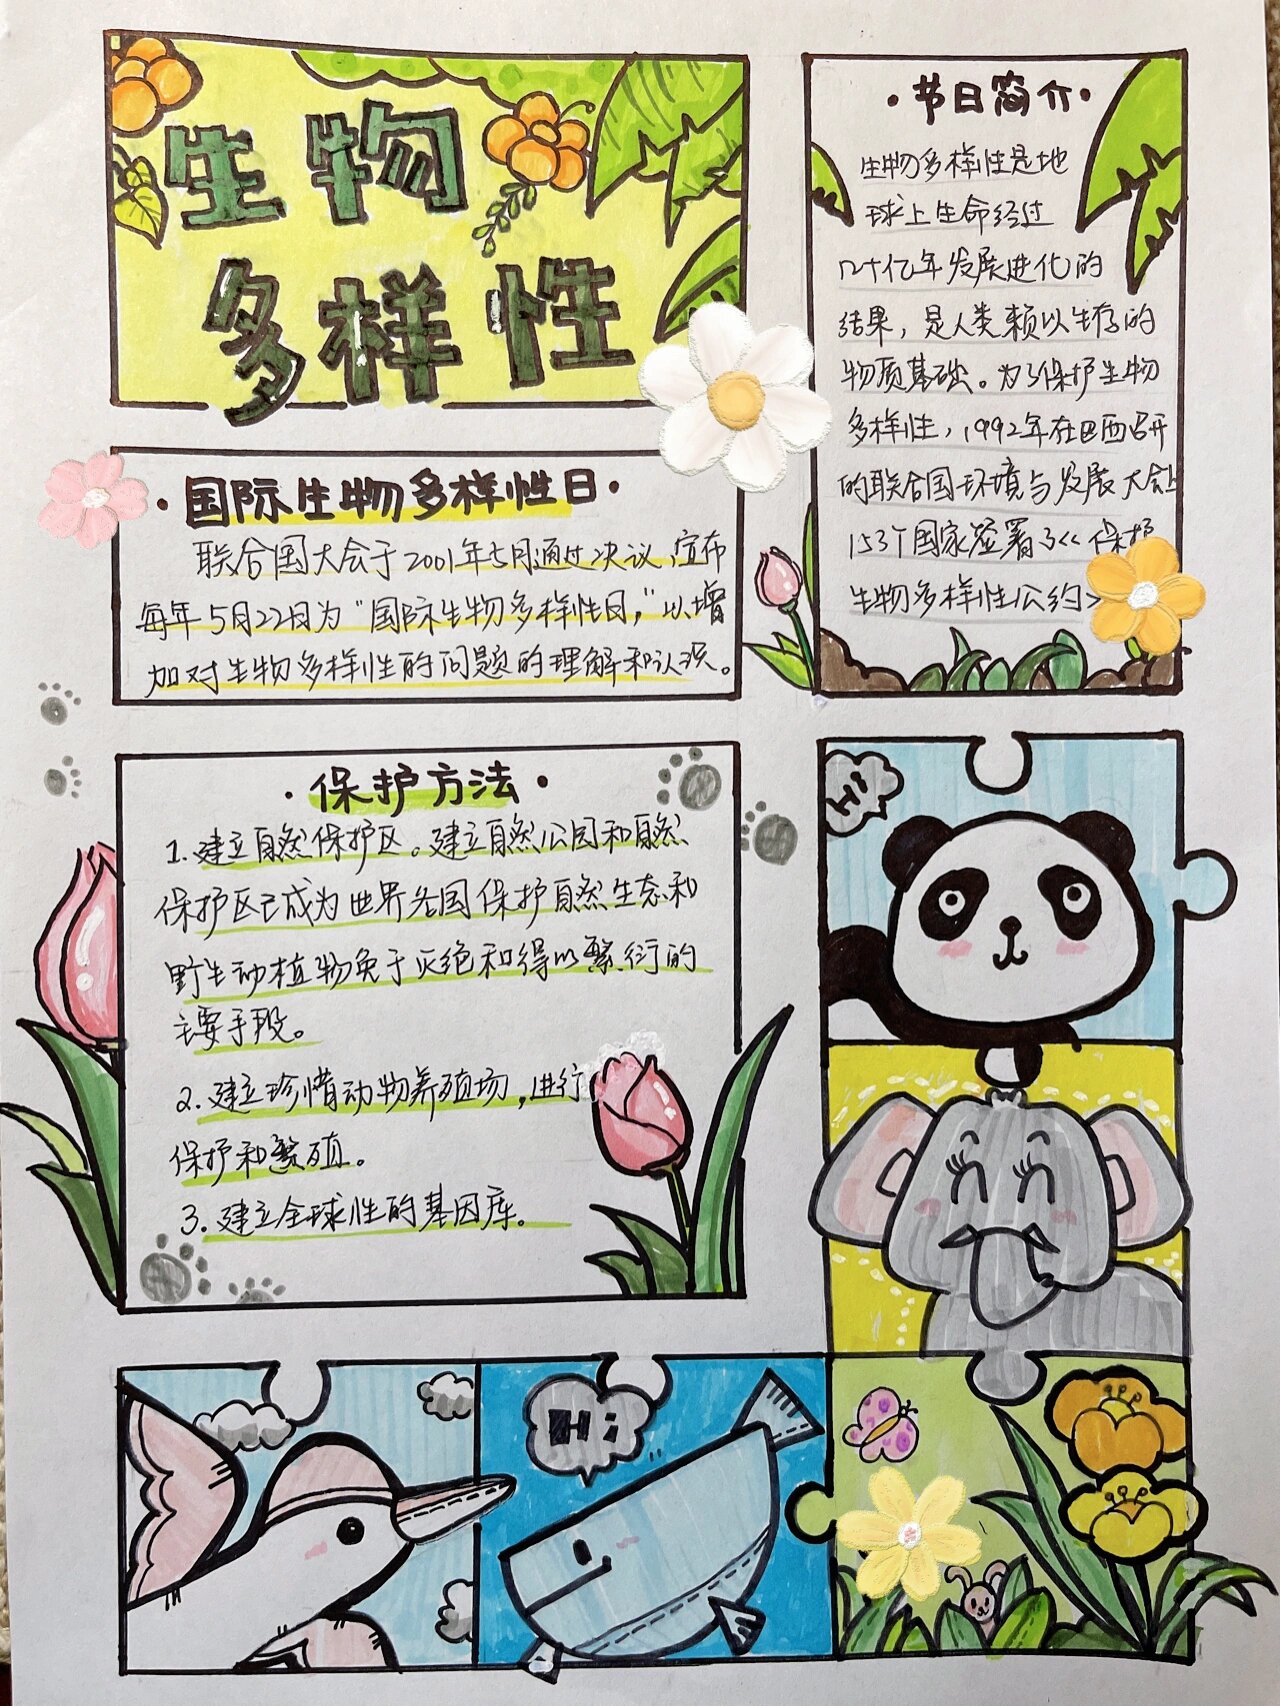 生物
多样性
·节日简介·
生物多样性是地
球上生命经过
几十亿年发展进化的
结果，是人类赖以生存的
物质基础。为了保护生物
多样性，1992年在巴西召开
的联合国环境与发展大会上
153个国家签署了《保护
生物多样性公约》
·国际生物多样性日·
联合国大会于2001年5月通过决议，宣布
每年5月22日为“国际生物多样性日，”以增
加对生物多样性的问题的理解和认识。
·保护方法·
1.建立自然保护区。建立自然公园和自然
保护区已成为世界各国保护自然生态和
野生动植物免于灭绝和得以繁衍的
主要手段。
2.建立珍惜动物养殖场，进行
保护和繁殖。
3.建立全球性的基因库。
Hi
Hi